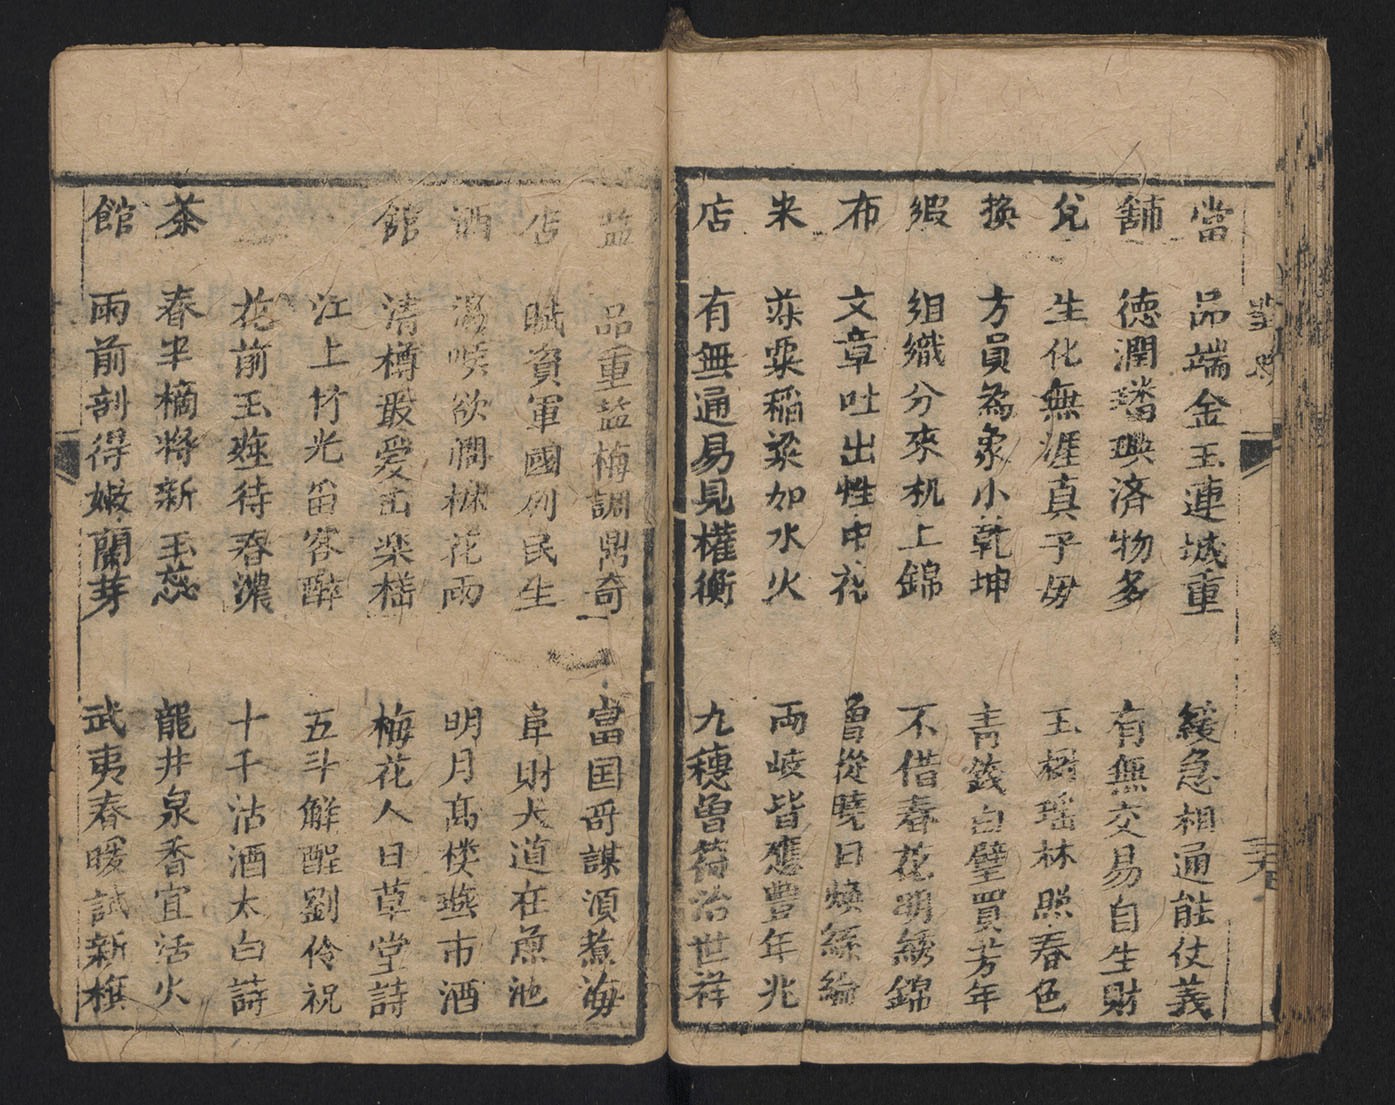 當 品端金玉連城重 緩急相通能仗義
舖 德潤璠璵済物多 有無交易自生財
兌 生化無涯真子毋 玉樹瑶林照春色
換 方員為象小乾坤 青錢白璧買芳年
緞 组織分來机上錦 不借春花明綉錦
布 文章吐出性中花 曾從曉日煥絲綸
米 菽粟稲粱如水火 両岐皆應豊年兆
店 有無通易見權衡 九穗曽符治世祥
盐 品重盐梅調鼎奇 富囯哥謀湏煮海
店 賦資軍國利民生 阜財大道在魚池
酒 渴喉欲潤棶花雨 明月髙楼燕市酒
館 清樽最愛 梅花人日草堂詩
江上竹光留客醉 五斗解酲劉伶祝
花前玉 待春濃 十千沽酒太白詩
茶 春半摘将新玉蕊 龍井泉香宜活火
館 雨前剖得嫩蘭芽 武夷春暖試新旗